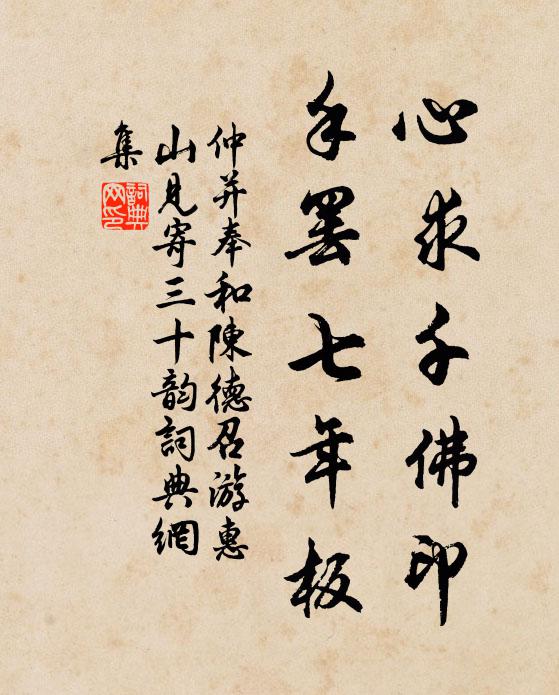 心求千佛印
手罢七年板
仲并奉和陳德召游惠
山見寄三十韵詞典網
集
詞典
网印